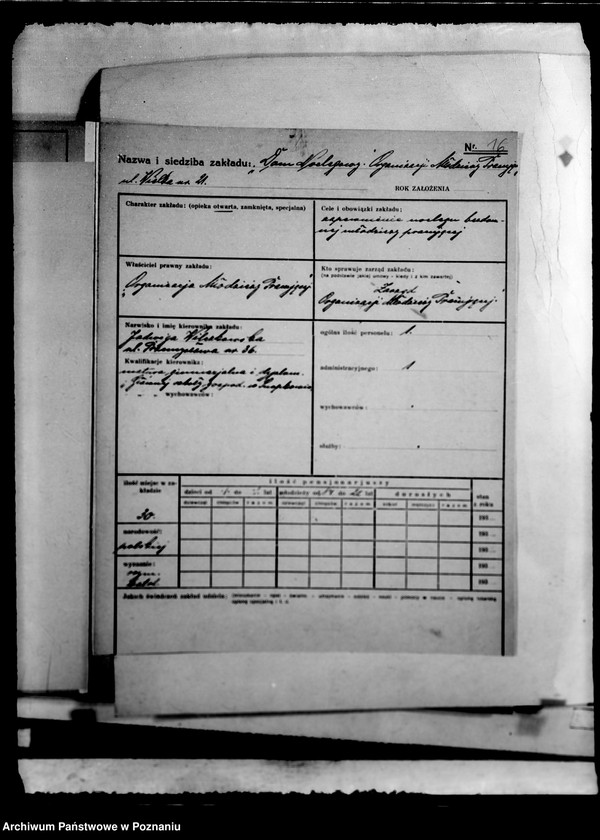 Nr. 16
Nazwa i siedziba zakładu: „Dom Noclegowy" Organizacji Młodzieży Pracującej
ul. Wielka nr. 21.
ROK ZAŁOŻENIA
Charakter zakładu: (opieka otwarta, zamknięta, specjalna)
Cele i obowiązki zakładu:
zapewnienie noclegu bezdom-
nej młodzieży pracującej
Właściciel prawny zakładu:
„Organizacja Młodzieży Pracującej
Kto sprawuje zarząd zakładu:
(na podstawie jakiej umowy - kiedy i z kim zawartej)
Zarząd
Organizacji Młodzieży Pracującej
Nazwisko i imię kierownika zakładu:
Jadwiga
ul. Przemysłowa nr. 36.
Kwalifikacje kierownika:
matura gimnazjalna i dyplom
szkoły gospod. w
wychowawców:
ogólna ilość personelu: 1.
administracyjnego: 1
wychowawców:
służby:
ilość miejsc w za-
kładzie
ilość pensjonarjuszy
dzieci od do lat
młodzieży od 14 do lat
dorosłych
stan
z roku
dziewcząt chłopców razem dziewcząt chłopców razem kobiet mężczyzn razem
30.
193
narodowość:
193
polskiej
193
wyznanie:
193
rzym.
katol.
193
Jakich świadczeń zakład udziela: (mieszkanie - opał - światło - utrzymanie - odzież - nauki - pomocy w nauce - opieką lekarską
opieką specjalną i t. d.
Archiwum Państwowe w Poznaniu